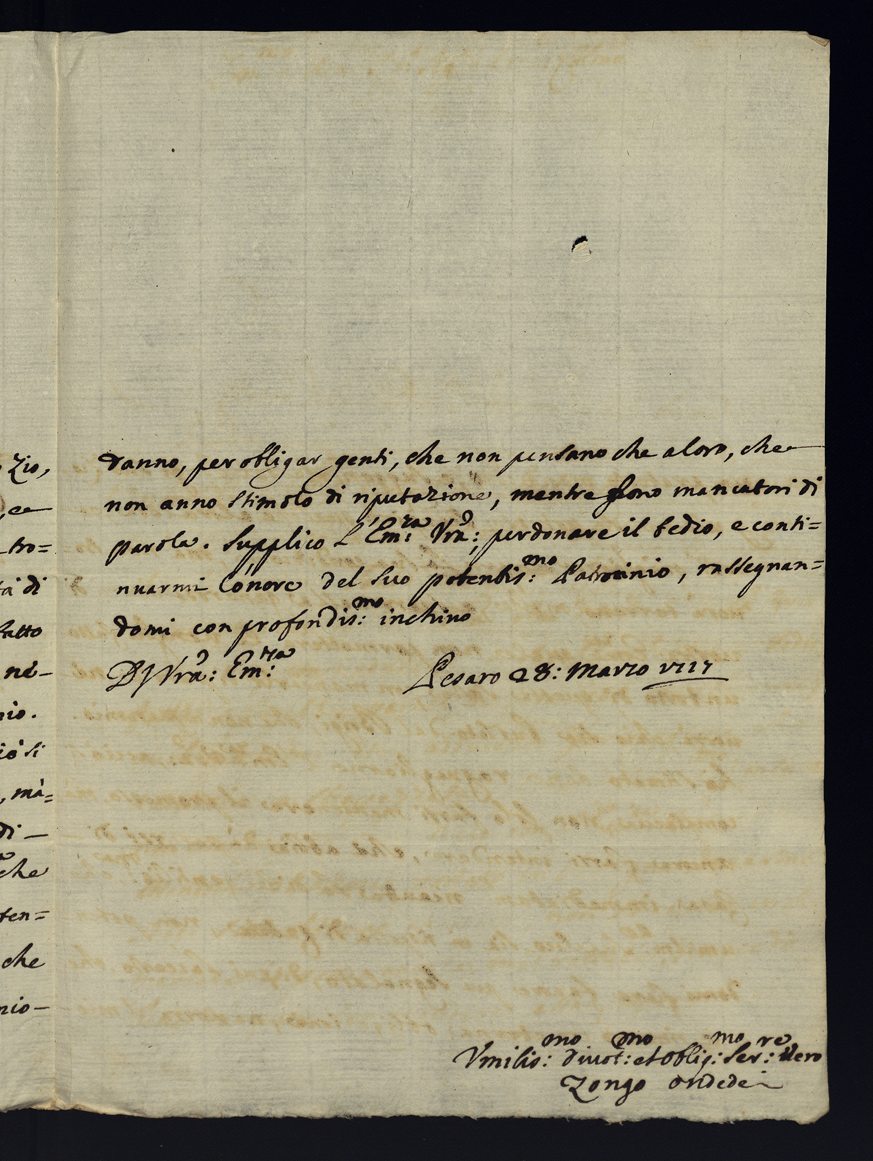 Zio,
danno, per obligar genti, che non pensano che a loro, che
non anno stimolo di riputazione, mentre sono mancatori di
parola. Supplico L'Em:za Vrã: perdonare il tedio, e conti=
nuarmi l'onore del suo potentis:mo Patrocinio, rassegnan=
domi con profondis:mo inchino
D'Vrã: Em:za
Pesaro 28: Marzo 1717
tro=
di
fatto
né-
nio.
si
, mà=
di -
che
ten=
che
nio-
Vmilis:mo divot:mo et oblig:mo Ser:re Vero
Zongo Ondedei